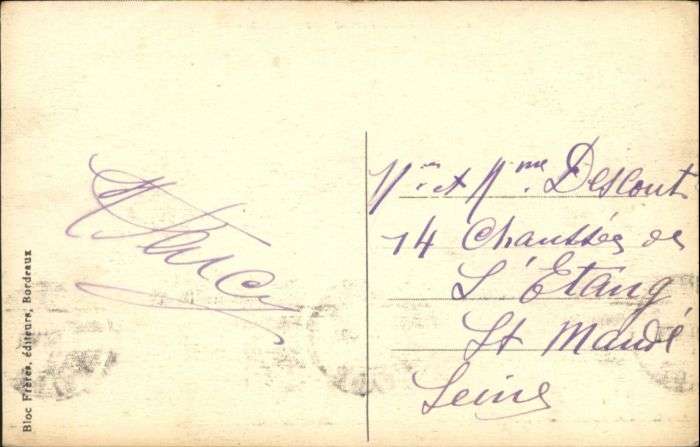 Bloc Frères, éditeurs, Bordeaux
Mr et Mme Descout
14 Chaussée de
L'Etang
St Mandé
Seine